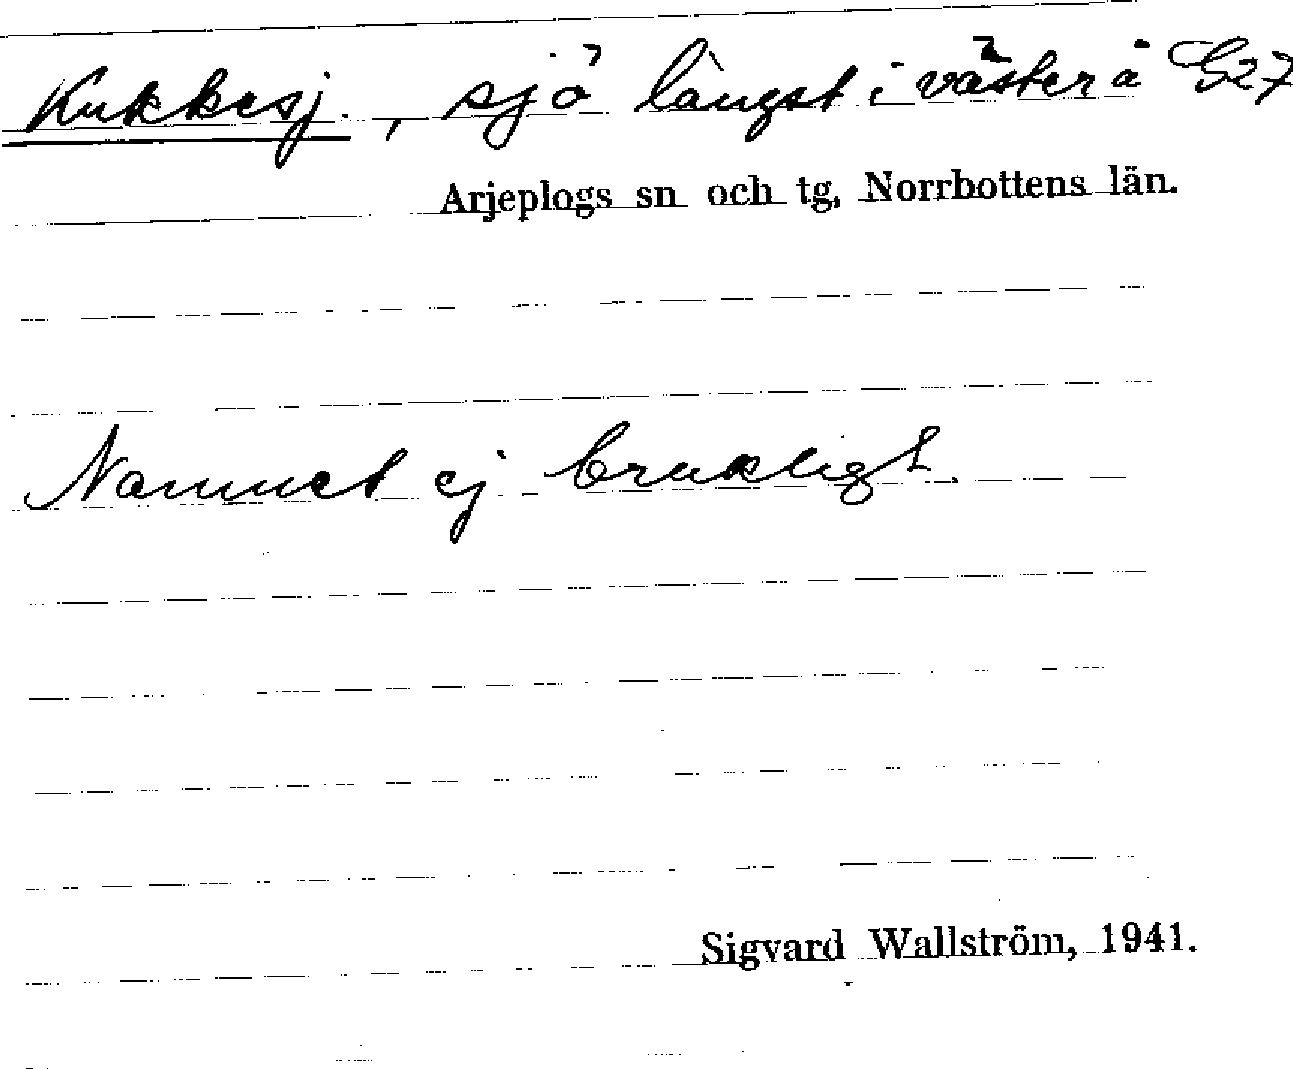 Kukkesj., sjö längst i väster å G27
Arjeplogs sn och tg, Norrbottens län.
Namnet ej brukligt.
Sigvard Wallström, 1941.